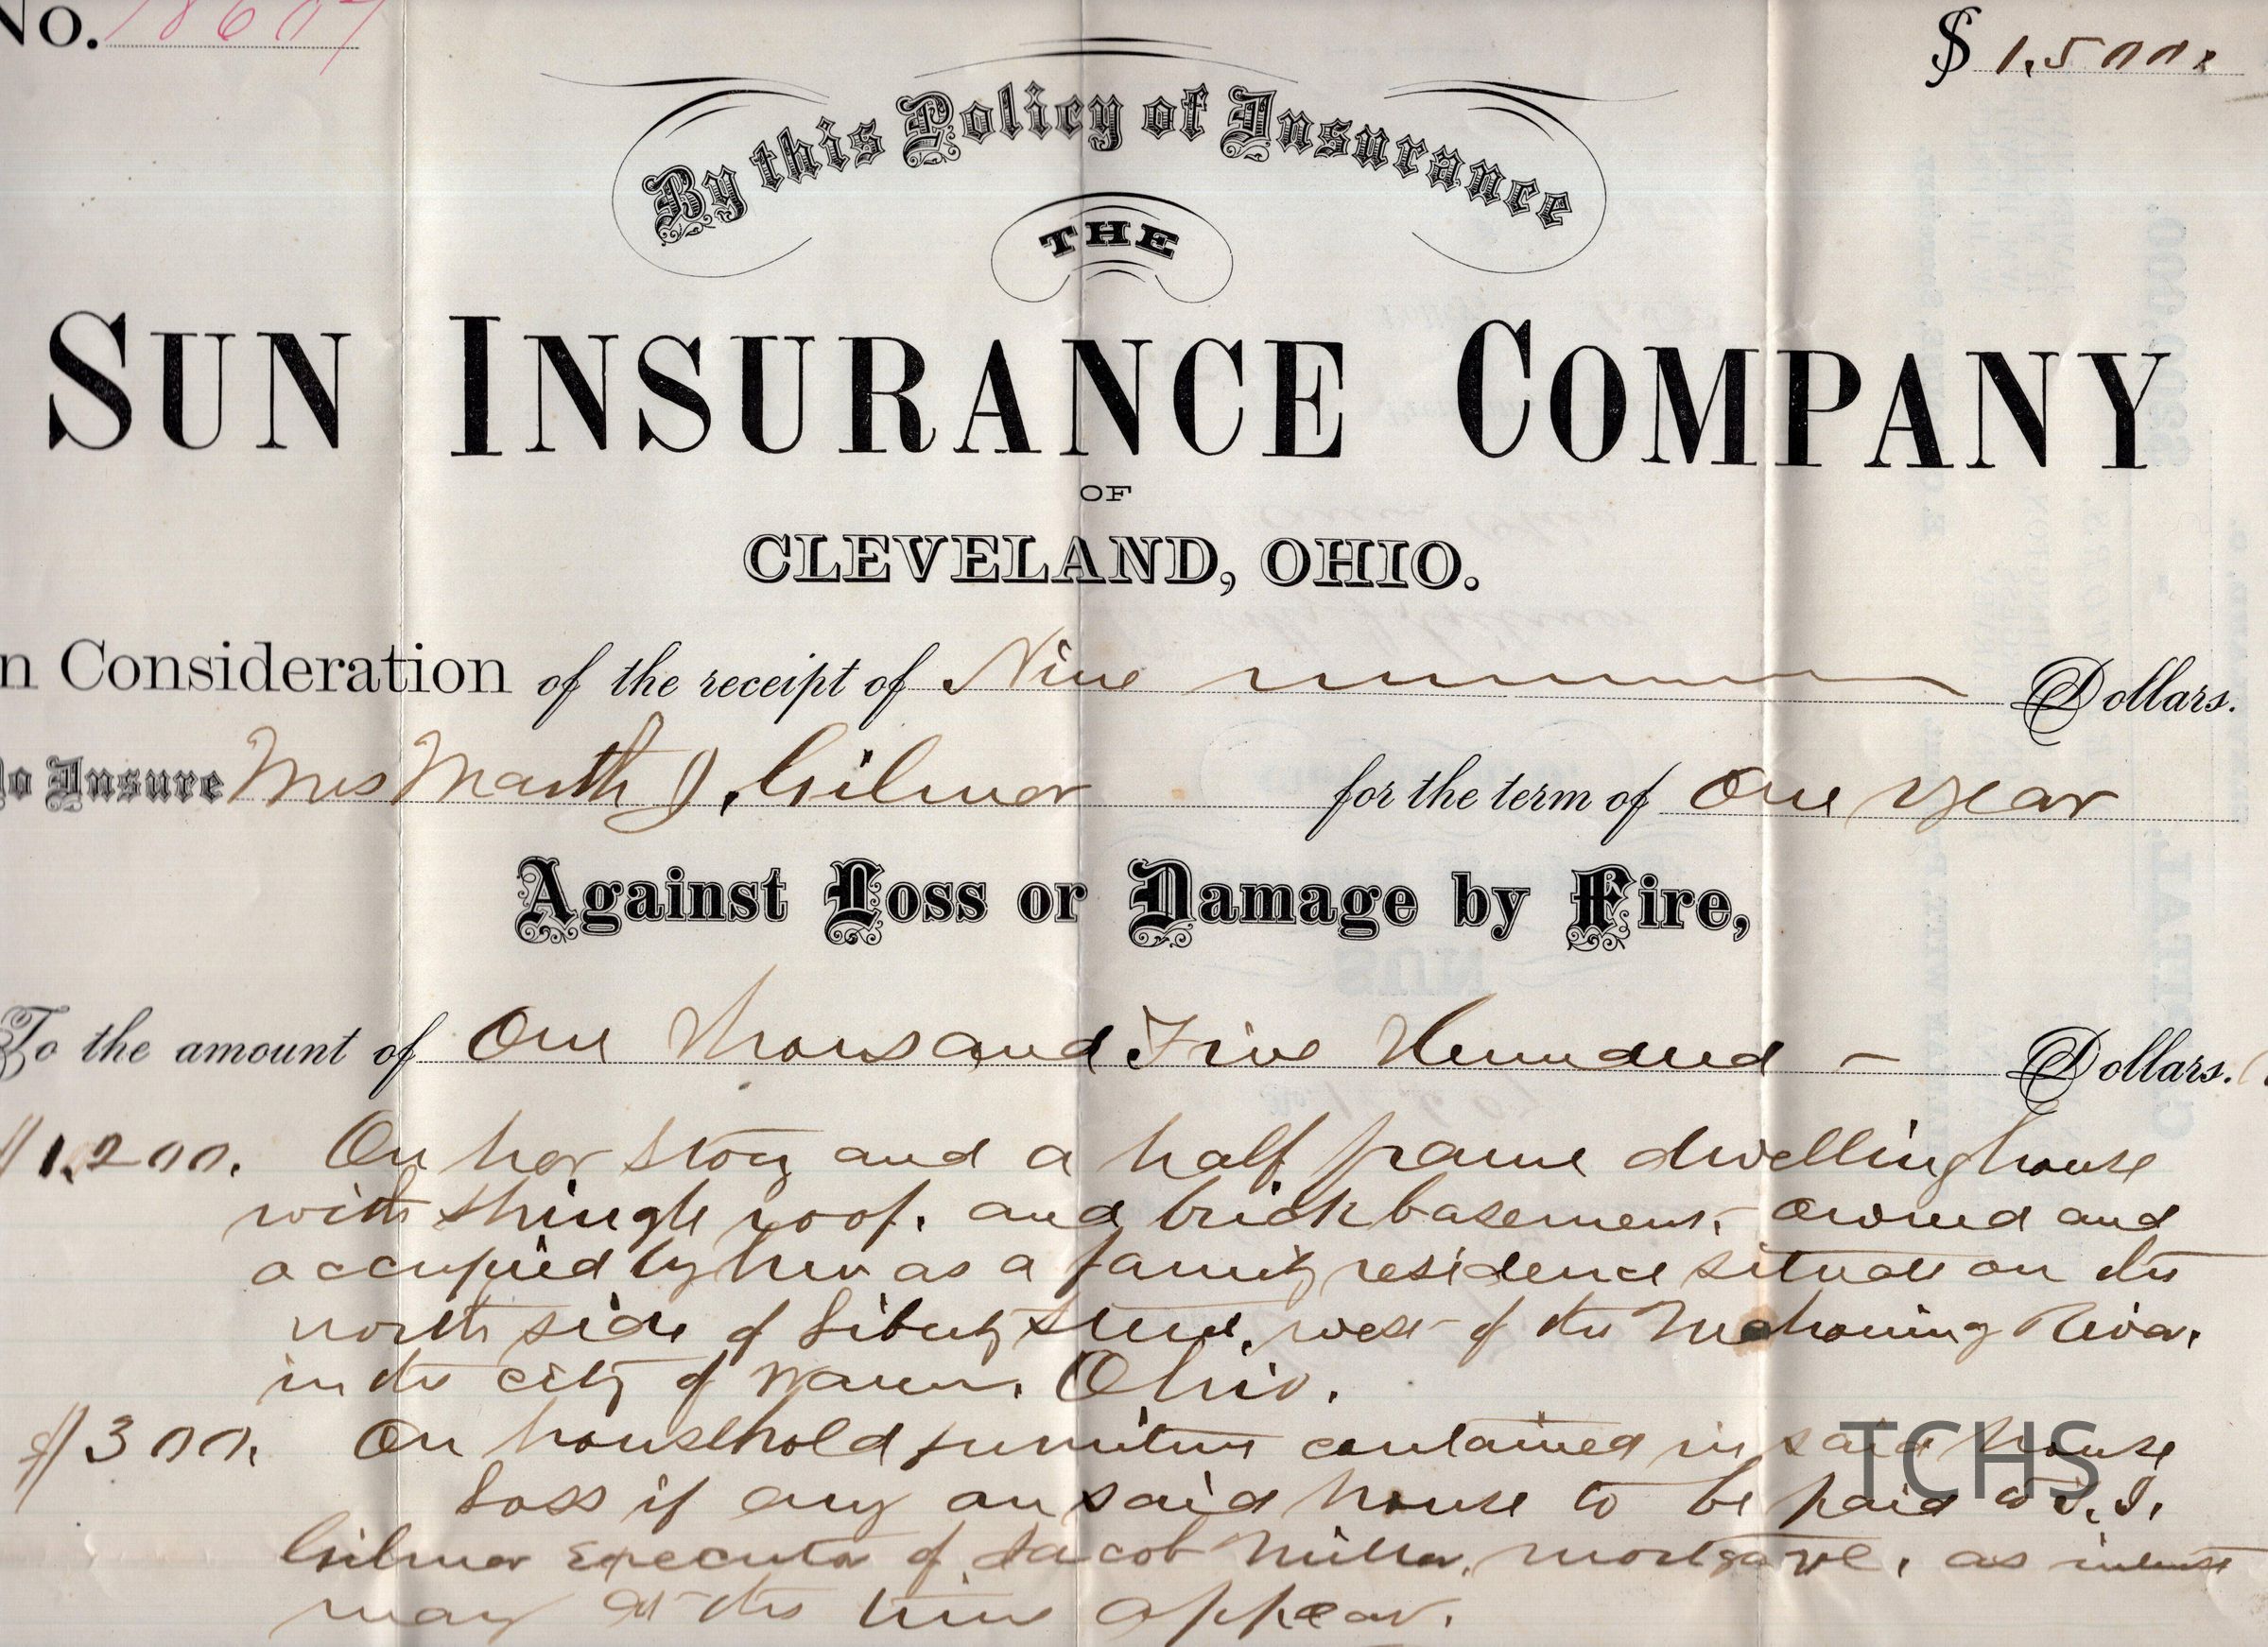 No. 18607
$ 1,500.
By this Policy of Insurance
THE
SUN INSURANCE COMPANY
OF
CLEVELAND, OHIO.
n Consideration of the receipt of Nine Dollars.
To Insure Mrs Marth J. Gilmer for the term of One year
Against Loss or Damage by Fire,
To the amount of One Thousand Five Hundred - Dollars.
$1,200. On her story and a half frame dwelling house
with shingle roof. and brick basement, owned and
occupied by her as a family residence situate on the
north side of Liberty Street, west of the Mahoning River.
in the city of Warren. Ohio.
$300. On household furniture contained in said house
Loss if any on said house to be paid to
Gilmer Executor of Jacob Miller, mortgagee, as interest
may at the time appear.
TCHS